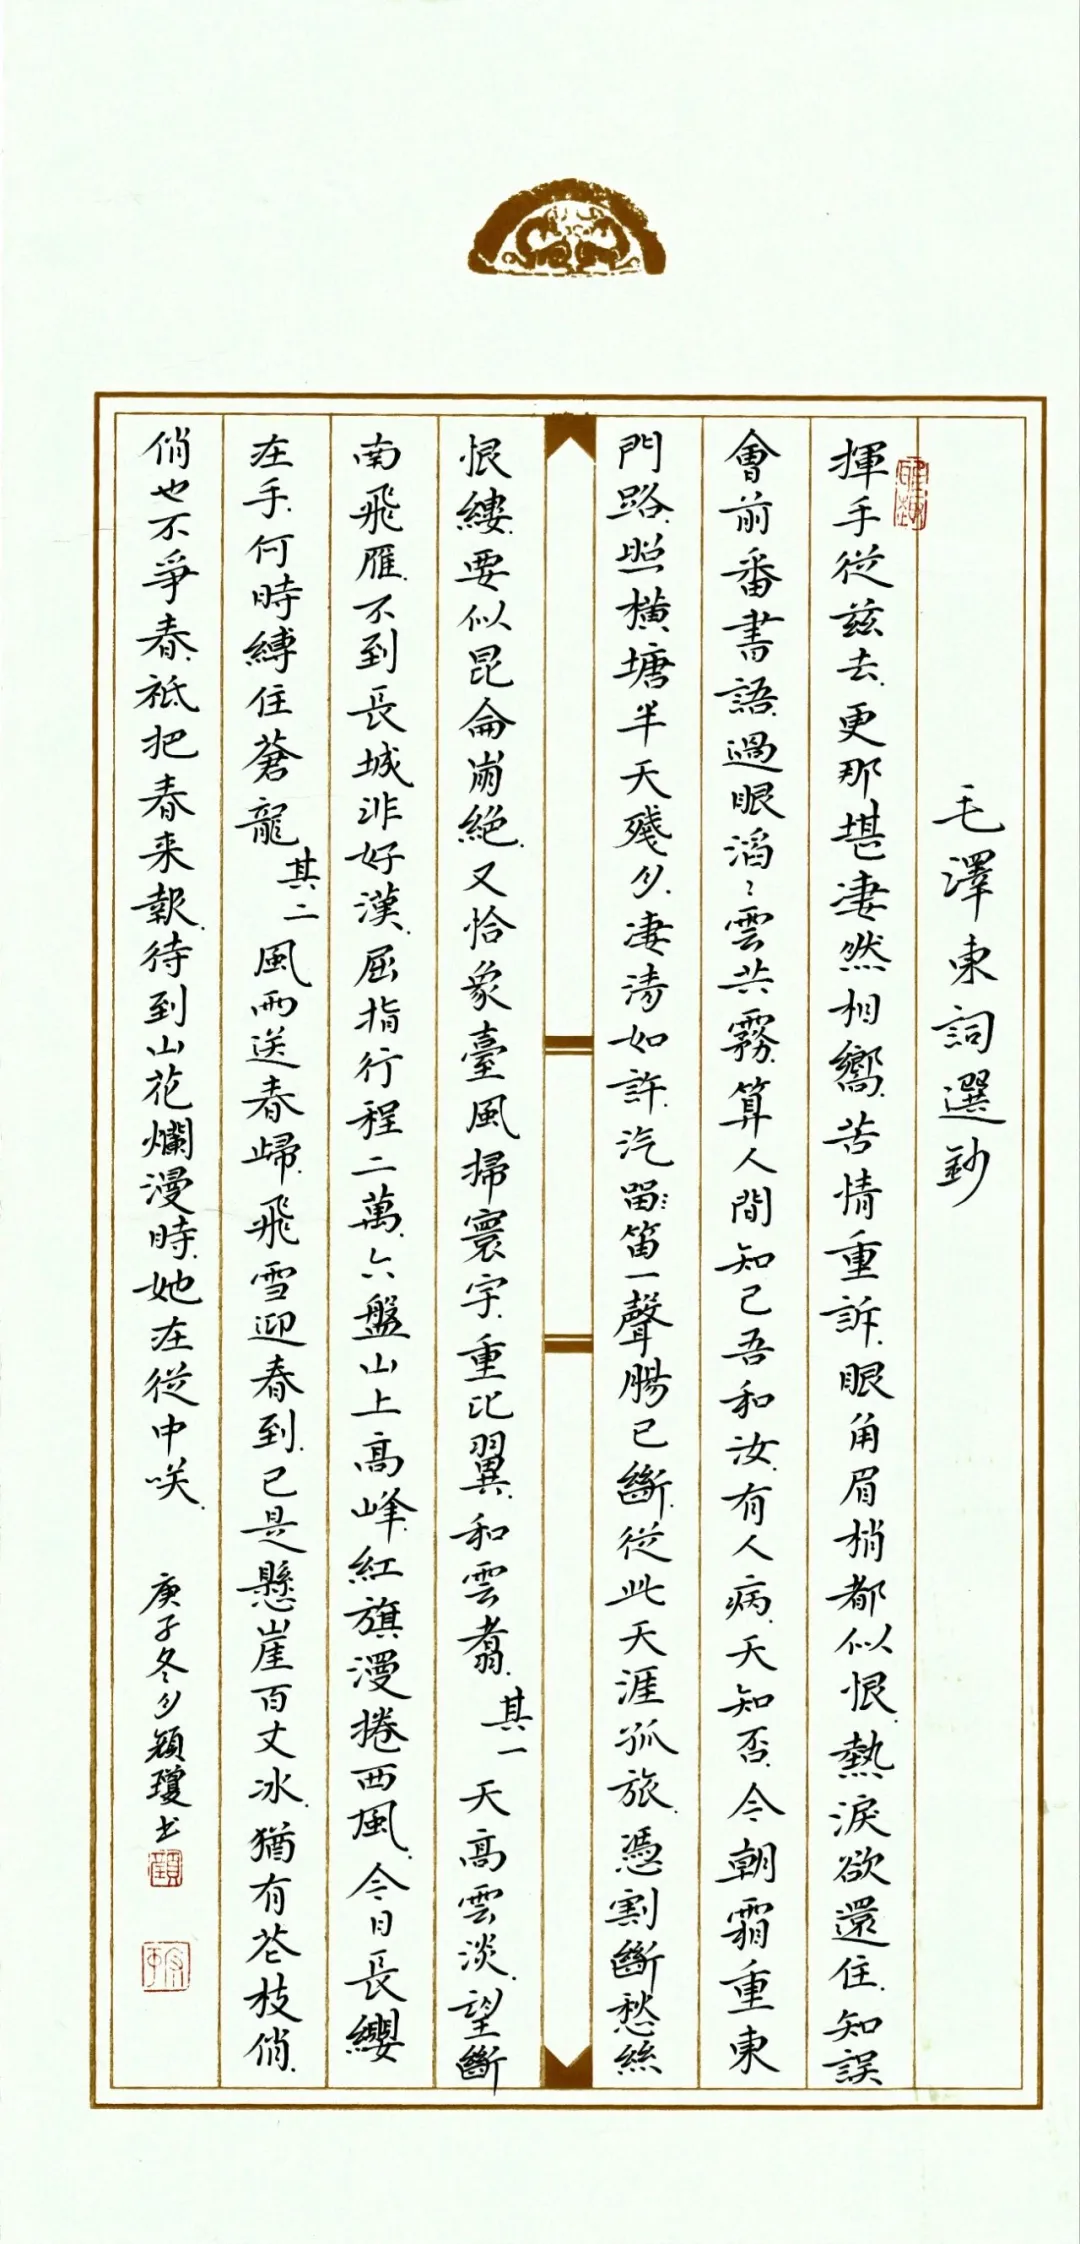 毛澤東詞選鈔
揮手從茲去.更那堪淒然相嚮.苦情重訴.眼角眉梢都似恨.熱淚欲還住.知誤
會前番書語.過眼滔〻雲共霧.算人間知己吾和汝.有人病.天知否.今朝霜重東
門路.照橫塘半天殘夕.淒清如許.汽留笛一聲腸已斷.從此天涯孤旅.憑割斷愁絲
恨縷.要似昆侖崩絕.又恰象臺風掃寰宇.重比翼.和雲翥.其一 天高雲淡.望斷
南飛雁.不到長城非好漢.屈指行程二萬.六盤山上高峰.紅旗漫捲西風.今日長纓
在手.何時縛住蒼龍 其二 風雨送春歸.飛雪迎春到.已是懸崖百丈冰.猶有花枝俏.
俏也不爭春.祇把春来報.待到山花爛漫時.她在從中咲. 庚子冬夕穎瓊书